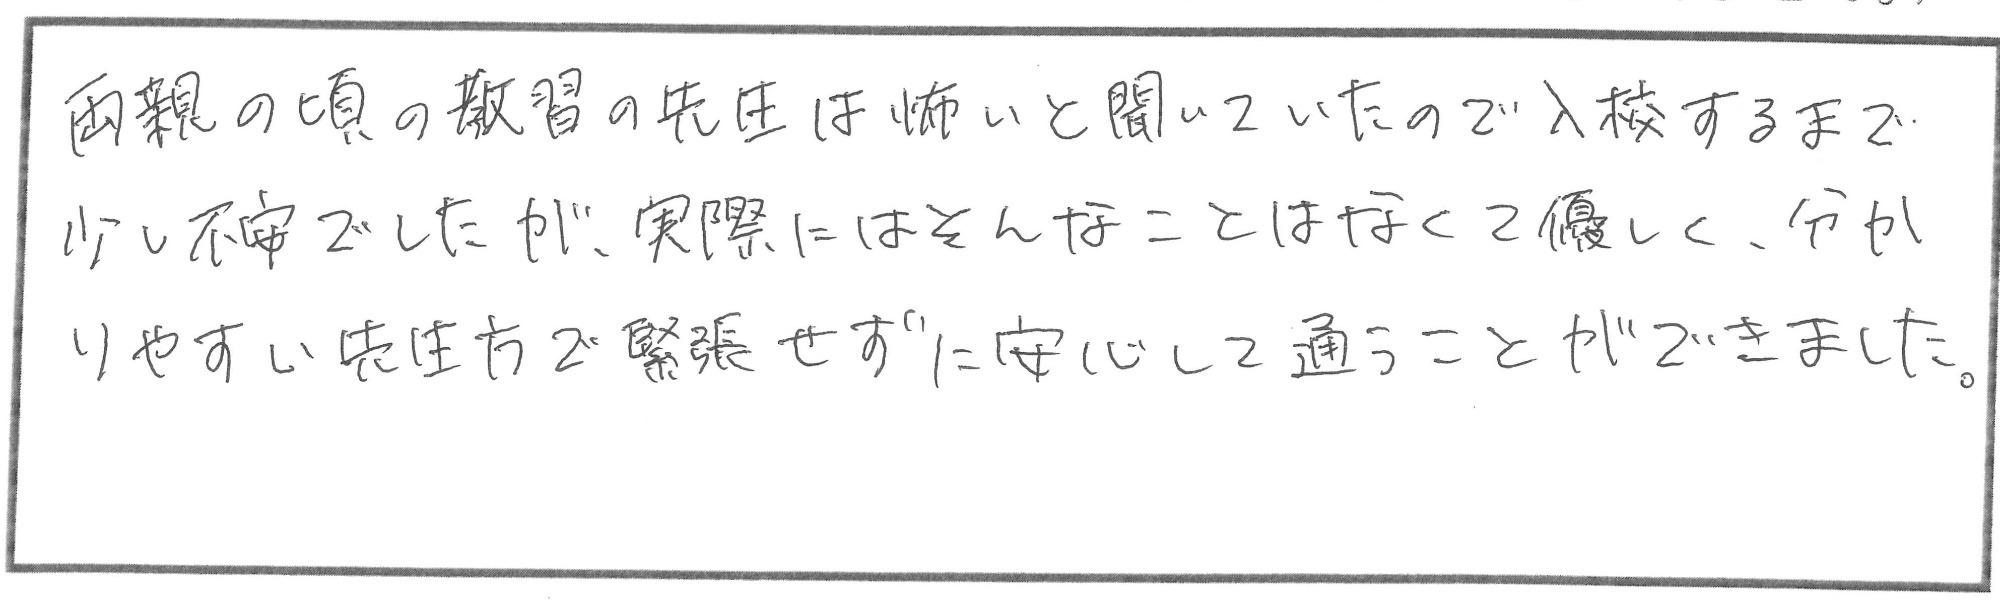 両親の頃の教習の先生は怖いと聞いていたので入校するまで
少し不安でしたが、実際にはそんなことはなくて優しく、分か
りやすい先生方で緊張せずに安心して通うことができました。